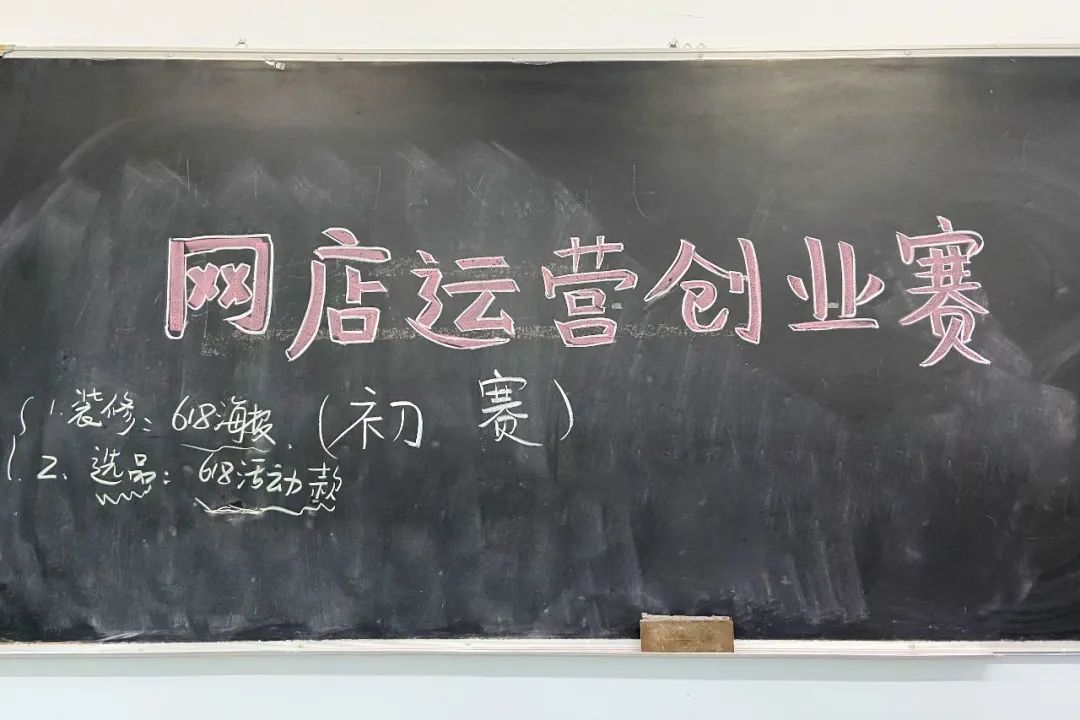 网店运营创业赛
(初 赛)
1. 装修：618海报.
2、选品：618活动款